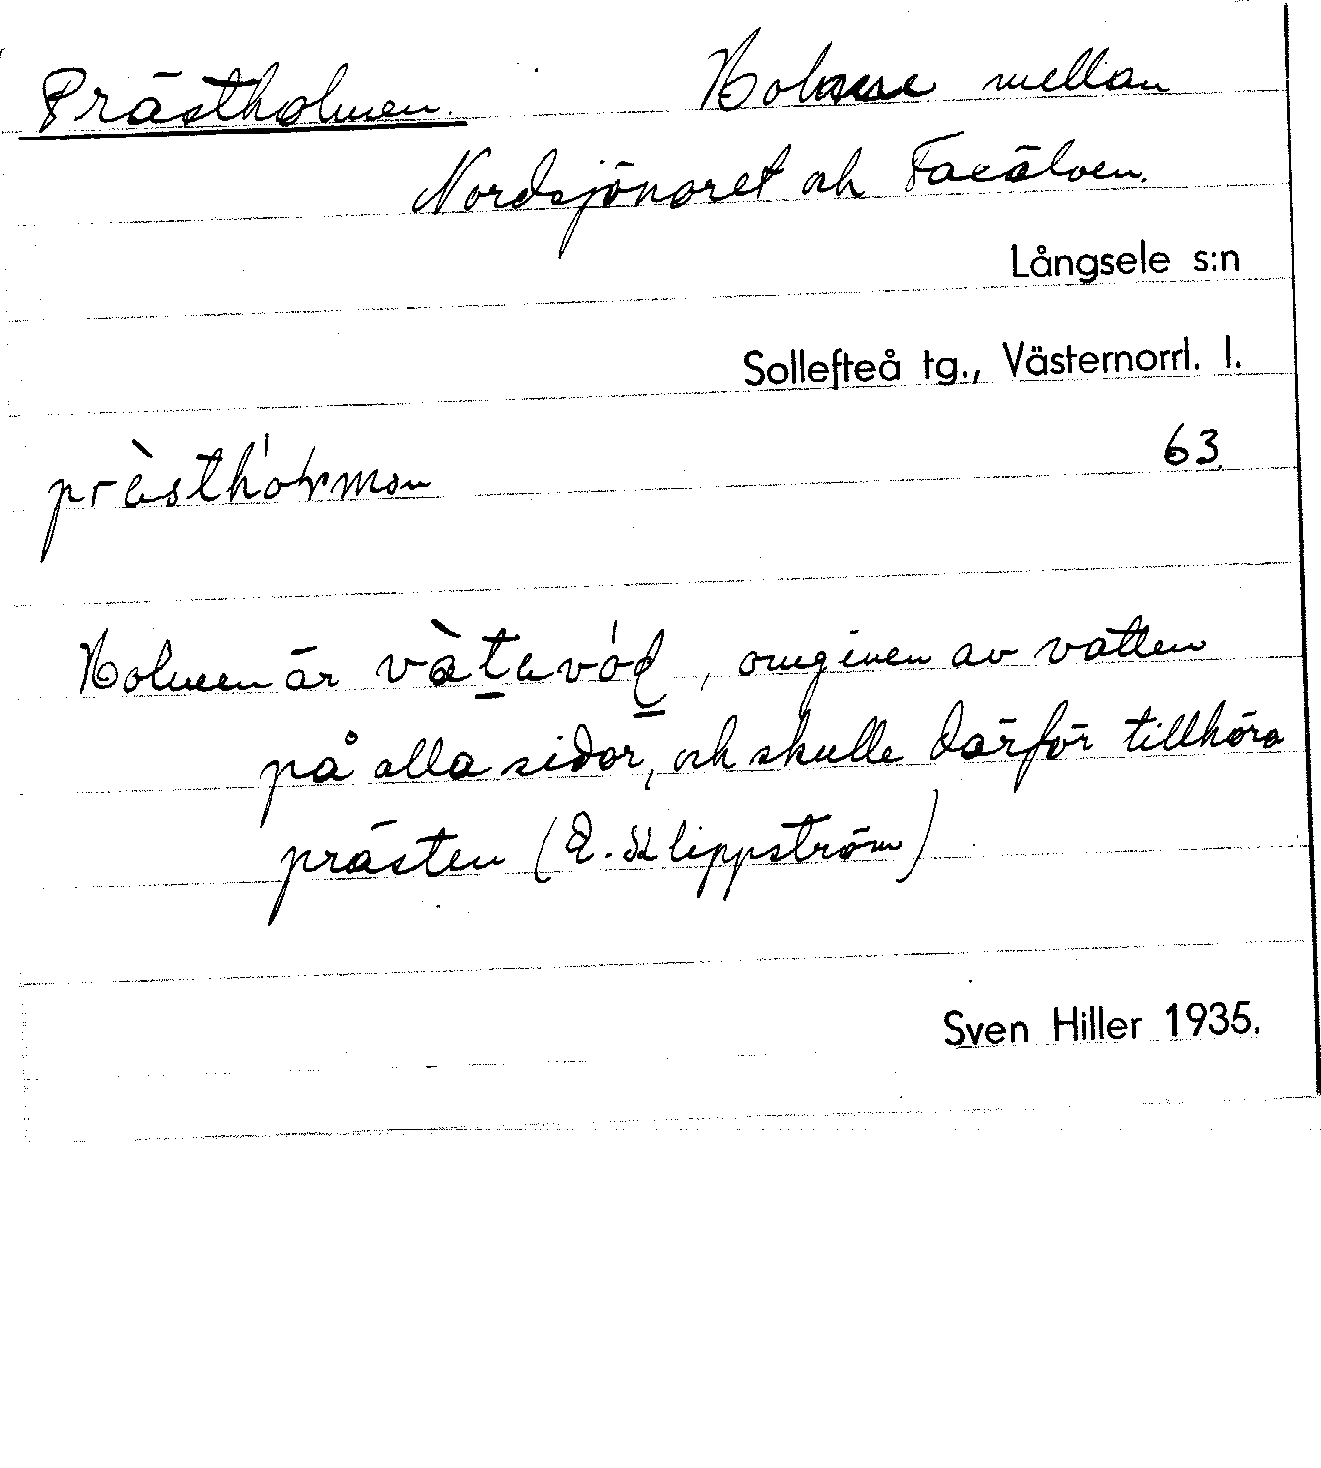 Prästholmen. Holme mellan
Nordsjönoret och Faxälven.
Långsele s:n
Sollefteå tg., Västernorrl. l.
63
Holmen är , omgiven av vatten
på alla sidor, och skulle därför tillhöra
prästen (E. Klippström)
Sven Hiller 1935.